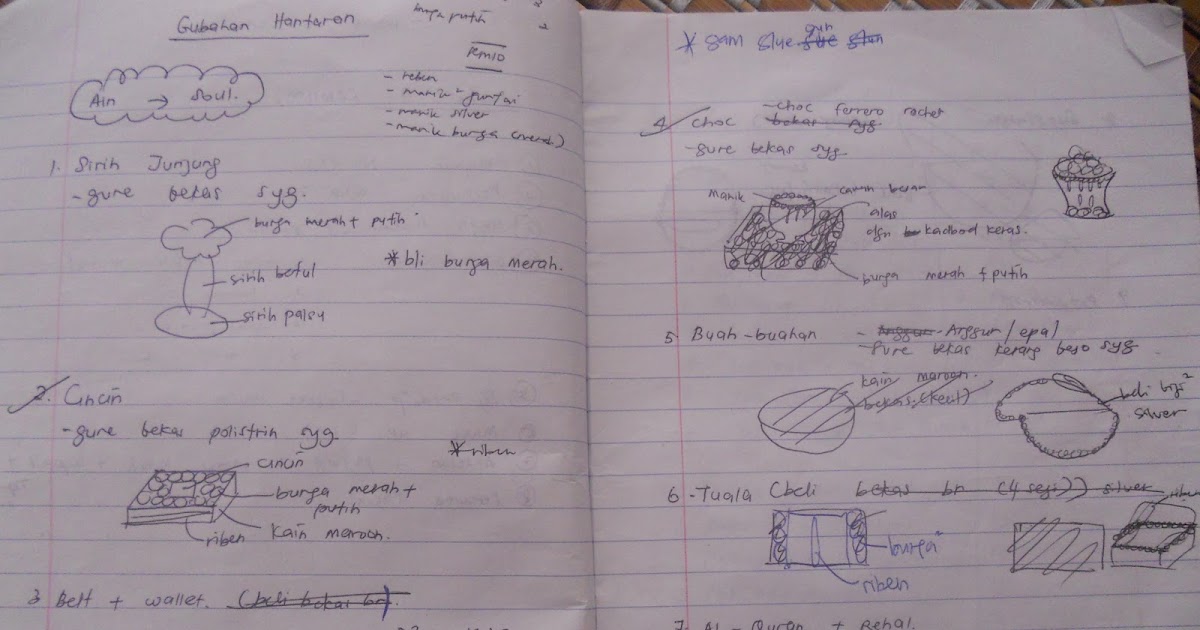 Gubahan Hantaran
bunga putih
2
RM10
Ain → Soul.
- reben
- manik² juntai
- manik silver
- manik bunga (merah)
1. Sirih Junjung
- gune bekas syg.
bunga merah + putih
sirih betul
sirih palsu
* bli bunga merah.
2. Cincin
- gune bekas polistrin syg
* riben
cincin
bunga merah +
putih
kain maroon.
riben
3 Belt + wallet. (beli bekas br).
* gam glue gun
4. choc - choc ferrero rocher
bekas syg
- gune bekas syg
manik
alas
dgn kadbod keras.
bunga merah + putih
5. Buah-buahan - Anggur / epal
- gune bekas kerang beso syg
kain maroon.
bekas (kecil)
beli biji²
silver
6 - Tuala (beli bekas br (4 segi)) silver
bunga²
riben
7. Al-Quran + Rehal.